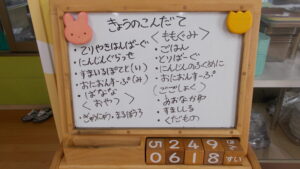 きょうのこんだて
・てりやきはんばーぐ
・にんじんぐらっせ
・すまいるぽてと(い)
・おたおんすーぷ(み)
・ばなな
〈おやつ〉
・ぎゅうにゅう・まるぼうろ
〈ももぐみ〉
・ごはん
・とりばーぐ
・にんじんのふくめに
・おたおんすーぷ
(ごごしょく)
・あおながゆ
・すましじる
・くだもの
5 2 4 9
0 6 1 8 すい